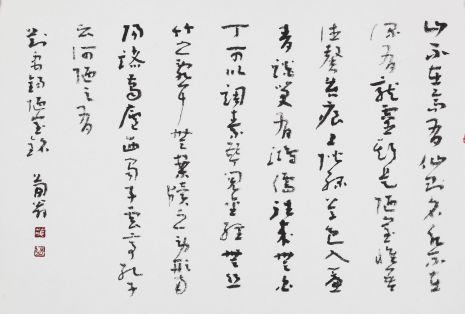 山不在高有仙則名水不在
深有龍靈斯是陋室惟吾
德馨苔痕上階綠草色入簾
青談笑有鴻儒往來無白
丁可以調素琴閱金經無絲
竹之亂耳無案牘之勞形南
陽諸葛廬西蜀子雲亭孔子
云何陋之有
劉禹錫陋室銘